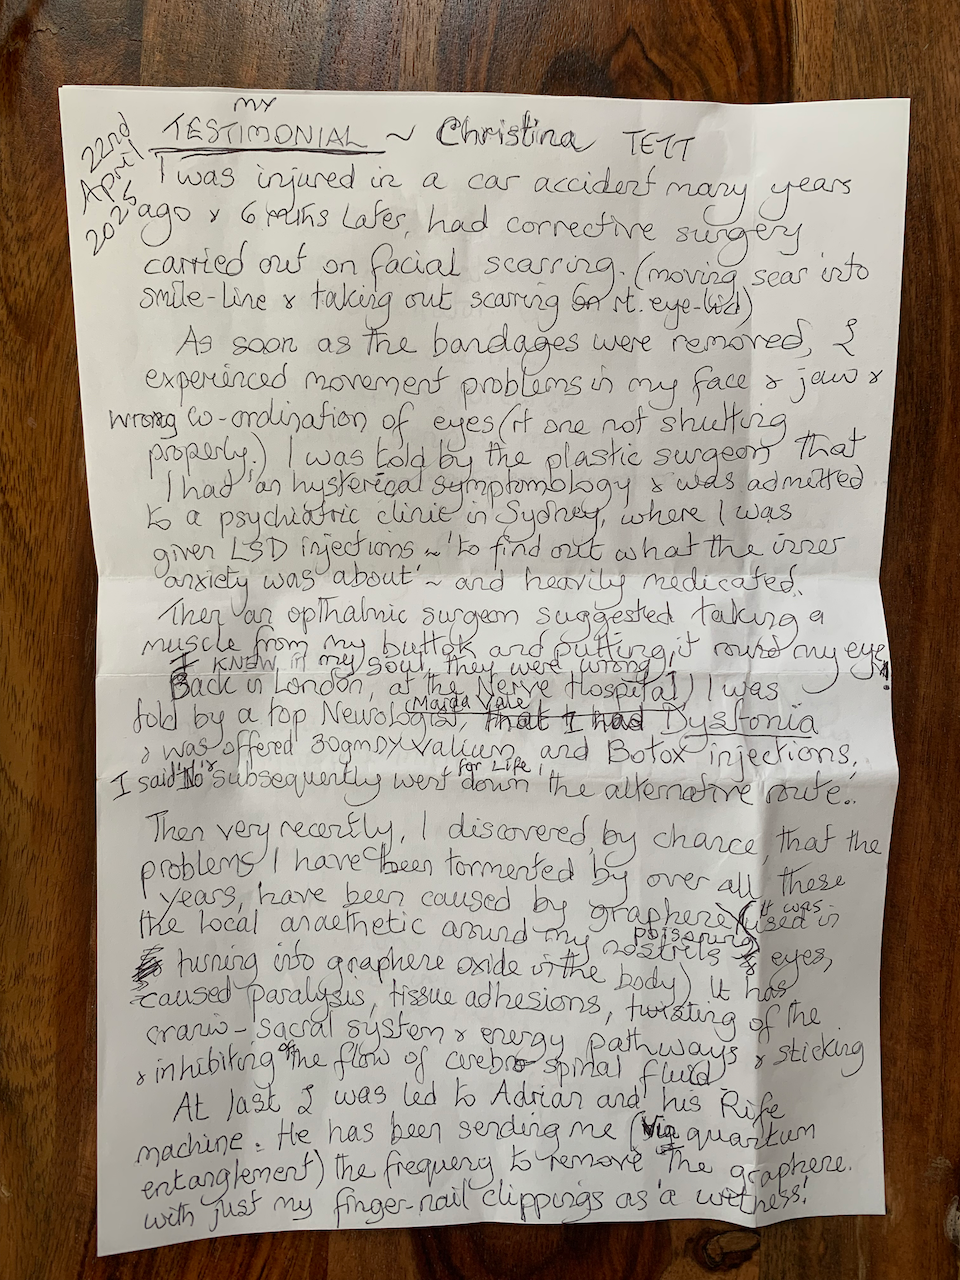 MY
TESTIMONIAL ~ Christina TETT
22nd
April
2025
I was injured in a car accident many years
ago & 6 mths later, had corrective surgery
carried out on facial scarring. (moving scar into
smile-line & taking out scarring on rt. eye-lid)
As soon as the bandages were removed, I
experienced movement problems in my face & jaw &
wrong co-ordination of eyes (rt one not shutting
properly.) I was told by the plastic surgeon that
I had 'an hysterical symptomology & was admitted
to a psychiatric clinic in Sydney, where I was
given LSD injections ~ 'to find out what the inner
anxiety was about' ~ and heavily medicated.
Then an opthalmic surgeon suggested taking a
muscle from my buttok and putting it round my eye!
I KNEW in my soul, they were wrong!
Back in London, at the Nerve Hospital) I was
(Maida Vale
told by a top Neurologist, that I had Dystonia
& was offered 30gm Valium, and Botox injections,
for Life!
I said 'No' & subsequently went down the alternative route..
Then very recently, I discovered, by chance, that the
problems I have been tormented by over all these
years, have been caused by graphene (it was used in
poisoning
the local anaethetic around my nostrils & eyes,
turning into graphene oxide in the body) It has
caused paralysis, tissue adhesions, twisting of the
cranio-sacral system & energy pathways & sticking
& inhibiting of the flow of cerebro spinal fluid
At last I was led to Adrian and his Rife
machine. He has been sending me (Via quantum
entanglement) the frequency to remove the graphene.
with just my finger-nail clippings as 'a witness!'